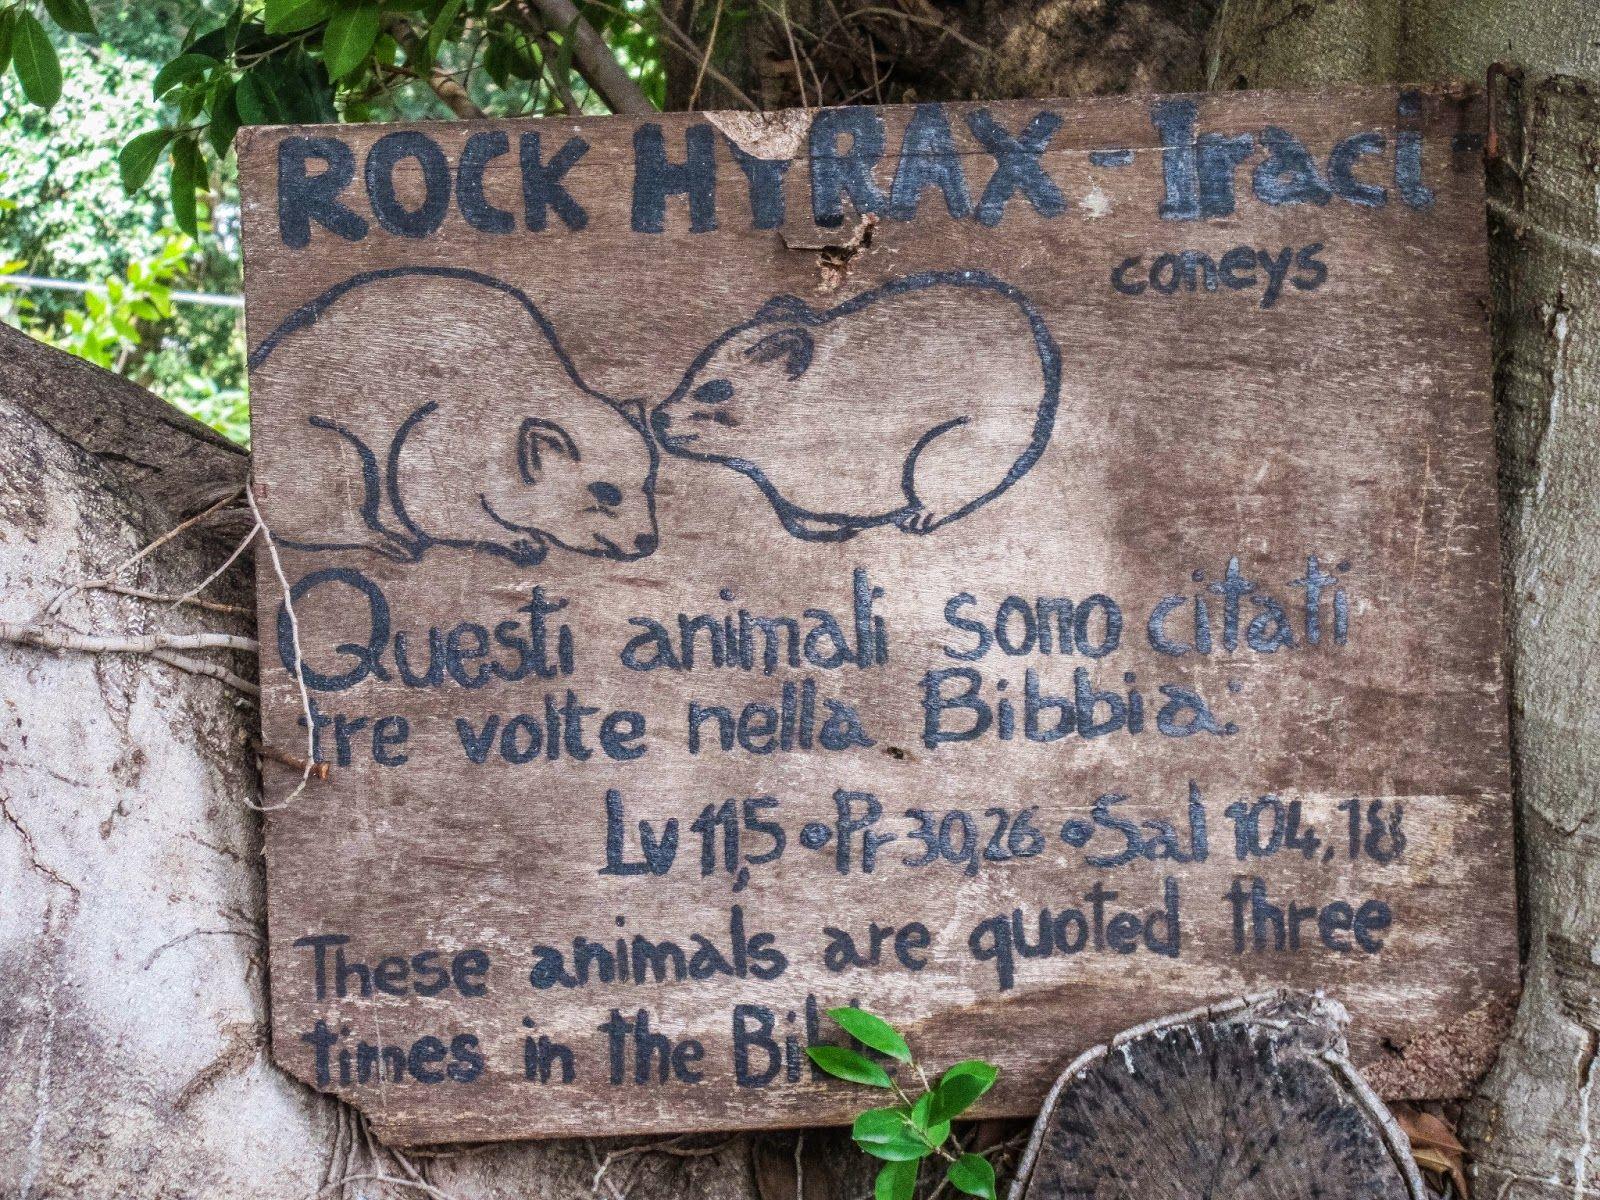 ROCK HYRAX - Iraci -
coneys
Questi animali sono citati
tre volte nella Bibbia:
Lv 11,5 • Pr 30,26 • Sal 104,18
These animals are quoted three
times in the